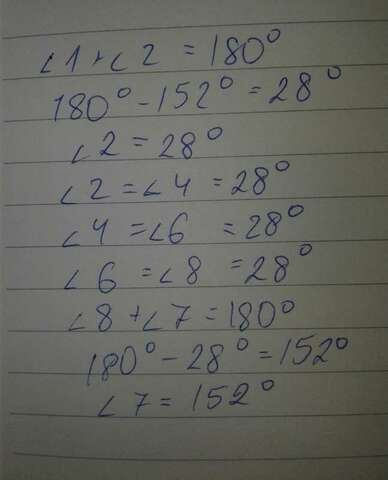 ∠1+∠2 = 180°
180° - 152° = 28°
∠2 = 28°
∠2 = ∠4 = 28°
∠4 = ∠6 = 28°
∠6 = ∠8 = 28°
∠8 + ∠7 = 180°
180° - 28° = 152°
∠7 = 152°